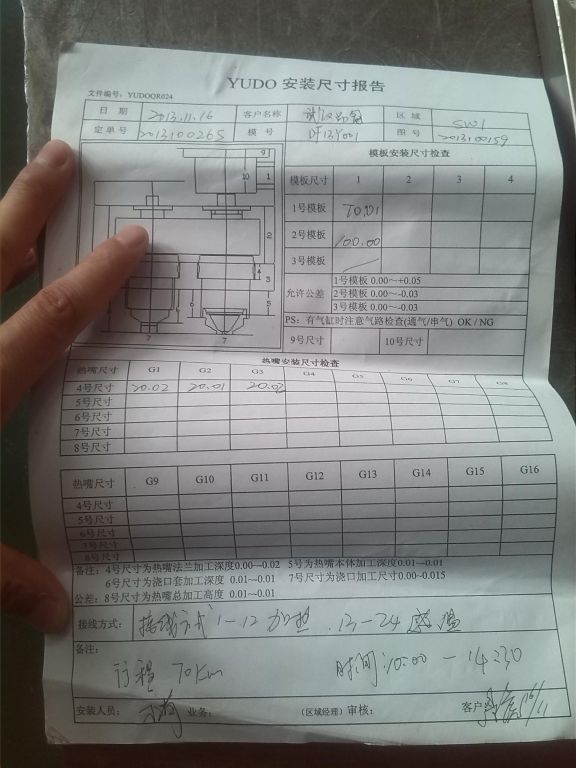 YUDO 安装尺寸报告
文件编号：YUDOQR024
日 期 2013.11.16 客户名称 区 域 SW1
定单号 201310026S 模 号 DF13Y001 图 号 2013100159
模板安装尺寸检查
模板尺寸 1 2 3 4
1号模板 70.01
2号模板 100.00
3号模板 /
允许公差 1号模板 0.00~+0.05
2号模板 0.00~-0.03
3号模板 0.00~-0.03
PS：有气缸时注意气路检查(通气/串气) OK / NG
9号尺寸 10号尺寸
9
10 1
2
4
3
6 6 5
7 7
热嘴安装尺寸检查
热嘴尺寸 G1 G2 G3 G4 G5 G6 G7 G8
4号尺寸 20.02 20.01 20.02
5号尺寸
6号尺寸
7号尺寸
8号尺寸
热嘴尺寸 G9 G10 G11 G12 G13 G14 G15 G16
4号尺寸
5号尺寸
6号尺寸
7号尺寸
8号尺寸
备注：4号尺寸为热嘴法兰加工深度0.00~-0.02 5号为热嘴本体加工深度0.01~-0.01
6号尺寸为浇口套加工深度 0.01~-0.01 7号尺寸为浇口加工尺寸0.00-0.015
公差：8号尺寸为热嘴总加工高度 0.01~-0.01
接线方式： 接线方式 1-12 加热 13-24 感温
备注：
行程 70Km 时间：10:00 - 14:30
安装人员： 业务： （区域经理）审核： 客户 16/11